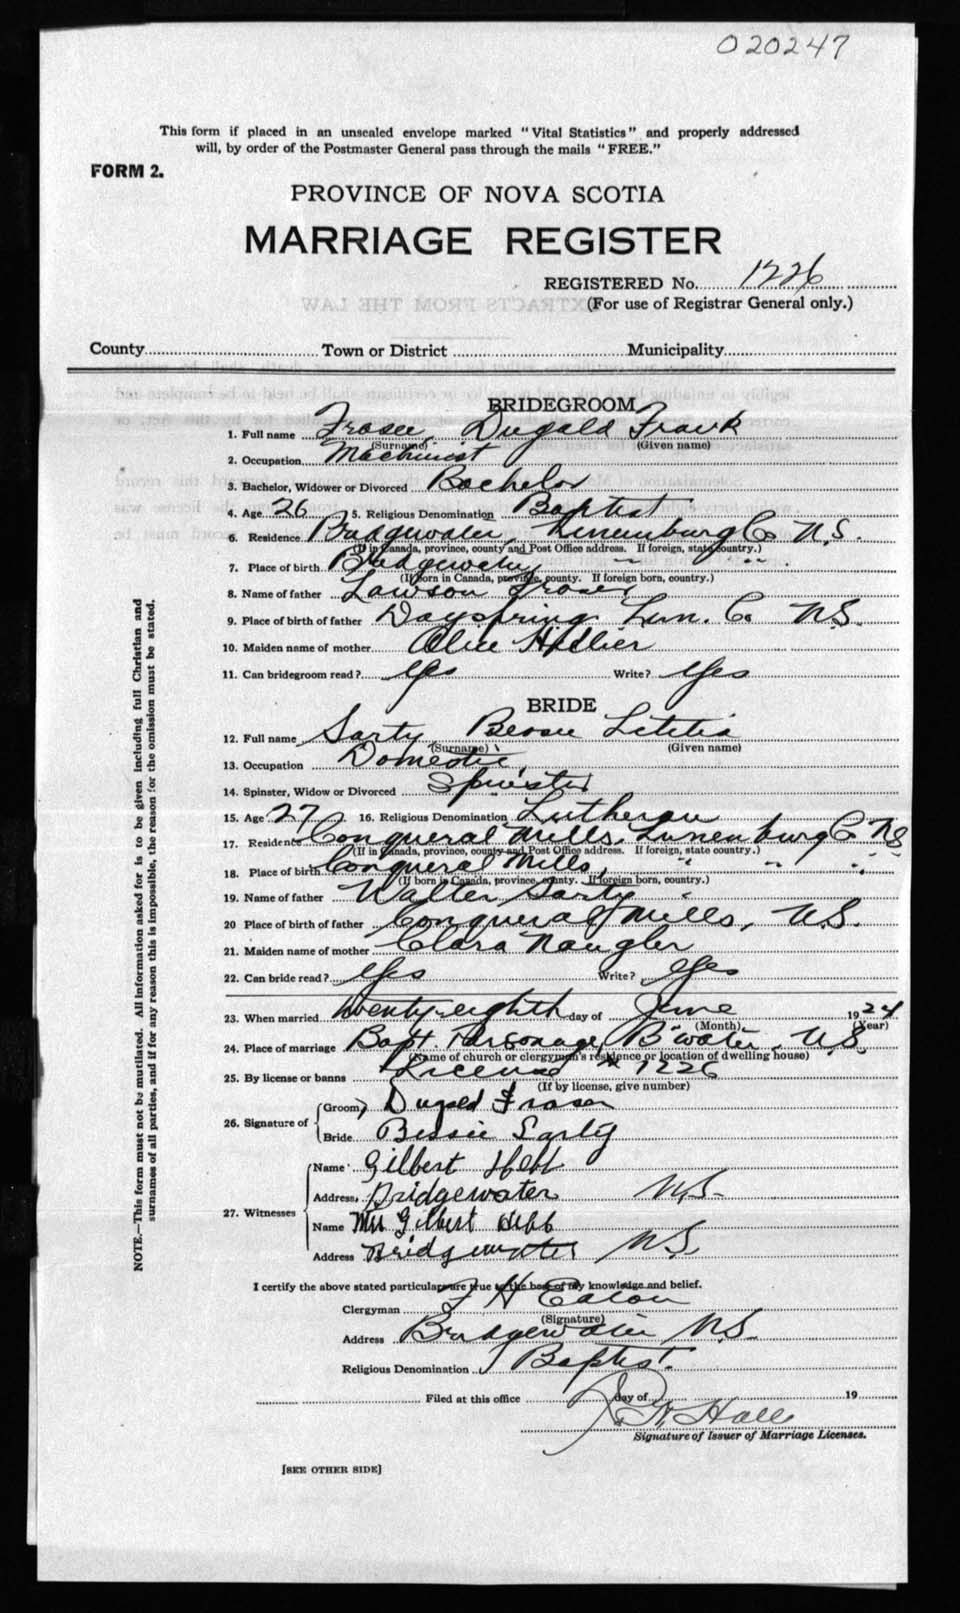 020247
This form if placed in an unsealed envelope marked "Vital Statistics" and properly addressed
will, by order of the Postmaster General pass through the mails "FREE."
FORM 2.
PROVINCE OF NOVA SCOTIA
MARRIAGE REGISTER
REGISTERED No. 1226
(For use of Registrar General only.)
EXTRACTS FROM THE LAW
County Town or District Municipality
BRIDEGROOM
1. Full name Fraser, Dugald Frank
(Surname) (Given name)
2. Occupation Machinist
3. Bachelor, Widower or Divorced Bachelor
4. Age 26 5. Religious Denomination Baptist
6. Residence Bridgewater, Lunenburg Co N.S.
(If in Canada, province, county and Post Office address. If foreign, state country.)
7. Place of birth Bridgewater, " "
(If born in Canada, province, county. If foreign born, country.)
8. Name of father Lawson Fraser
9. Place of birth of father Dayspring Lun. Co N.S.
10. Maiden name of mother Alice
11. Can bridegroom read? Yes Write? Yes
BRIDE
12. Full name Sarty, Bessie Letitia
(Surname) (Given name)
13. Occupation Domestic
14. Spinster, Widow or Divorced Spinster
15. Age 27 16. Religious Denomination Lutheran
17. Residence Conqueral Mills, Lunenburg Co NS
(If in Canada, province, county and Post Office address. If foreign, state country.)
18. Place of birth Conqueral Mills, " " "
(If born in Canada, province, county. If foreign born, country.)
19. Name of father Walter Sarty
20 Place of birth of father Conqueral Mills, N.S.
21. Maiden name of mother Clara Naugler
22. Can bride read? Yes Write? Yes
23. When married twenty-eighth day of June 1924
(Month) (Year)
24. Place of marriage Bapt. Parsonage, B'water, N.S.
(Name of church or clergymen's residence or location of dwelling house)
25. By license or banns License # 1226
(If by license, give number)
26. Signature of
Groom Dugald Fraser
Bride Bessie Sarty
27. Witnesses
Name Gilbert Hebb
Address Bridgewater N.S.
Name Mrs Gilbert Hebb
Address Bridgewater N.S.
I certify the above stated particulars are true to the best of my knowledge and belief.
Clergyman F H Eaton
(Signature)
Address Bridgewater N.S.
Religious Denomination Baptist.
Filed at this office day of 19
Hall
Signature of Issuer of Marriage Licenses.
[SEE OTHER SIDE]
NOTE.—This form must not be mutilated. All information asked for is to be given including full Christian and
surnames of all parties, and if for any reason this is impossible, the reason for the omission must be stated.